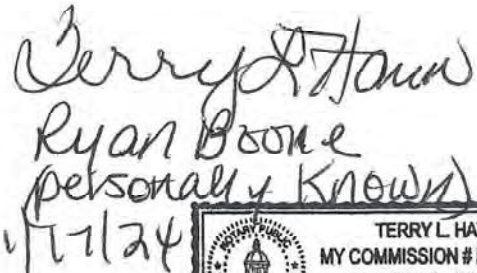 Terry L Hann
Ryan Boone
personally Known
1/17/24
NOTARY PUBLIC
TERRY L. HA
MY COMMISSION #